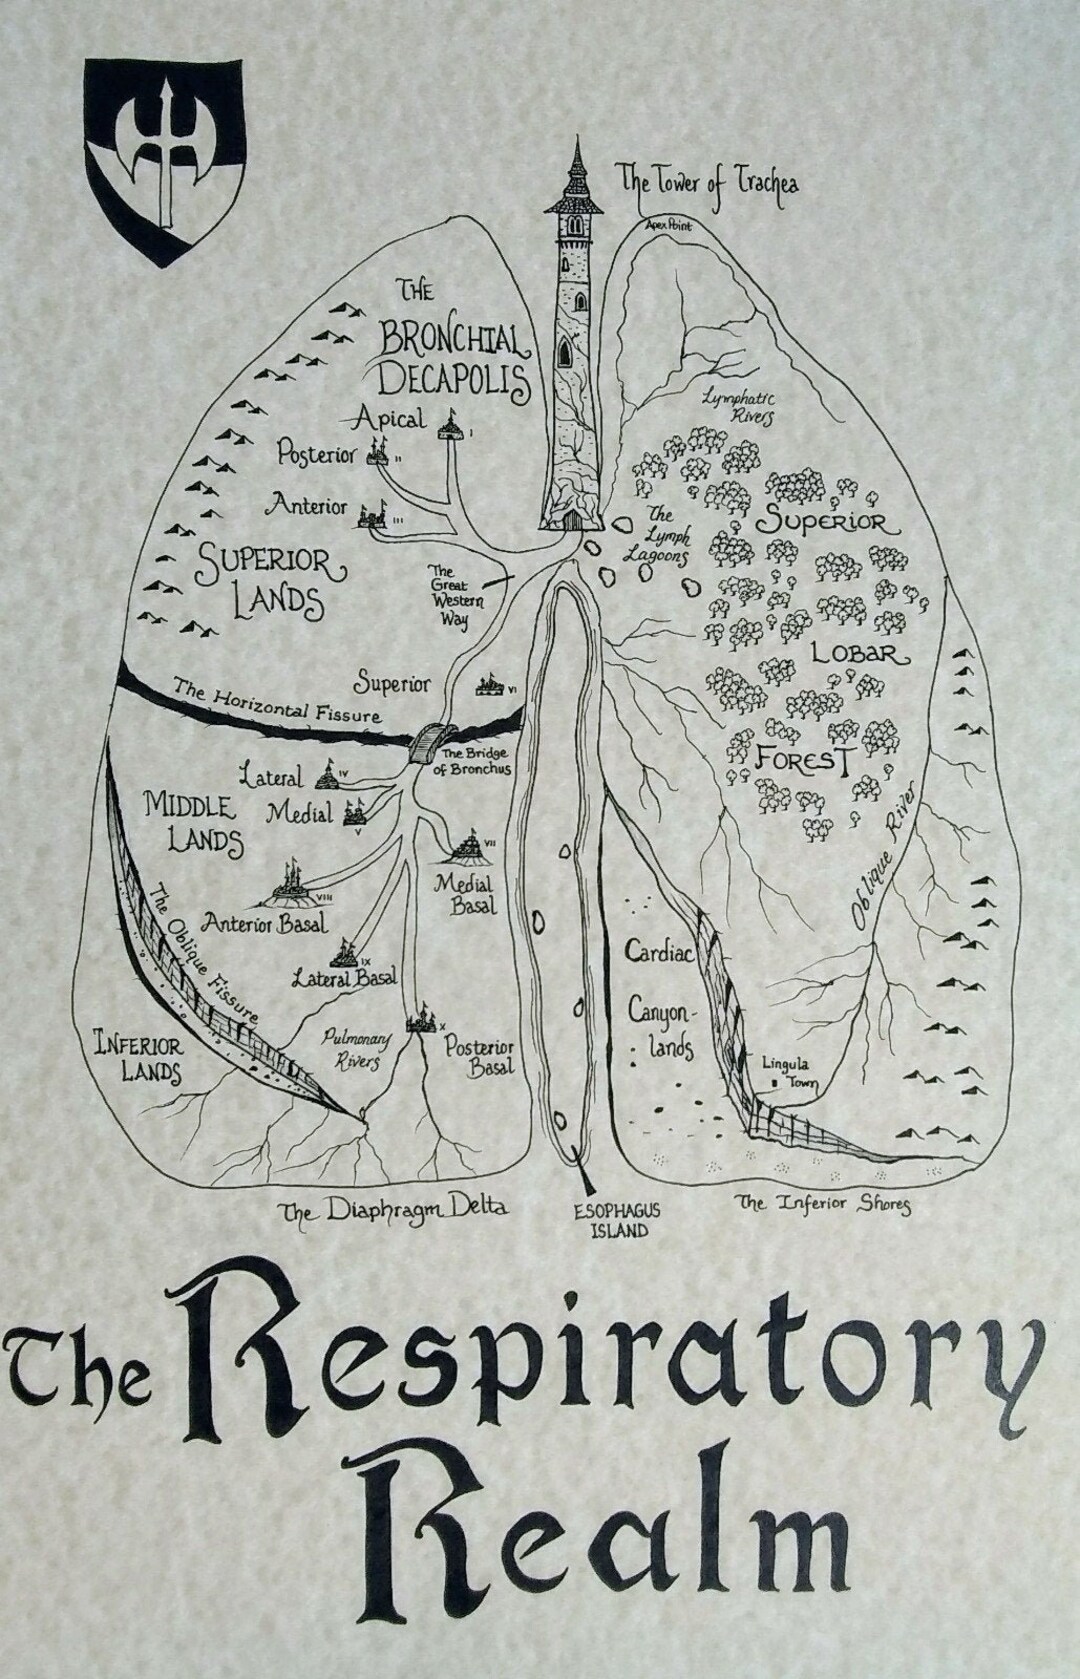 The Tower of Trachea
Apex Point
THE
BRONCHIAL
DECAPOLIS
Apical
I
Posterior
II
Anterior
III
SUPERIOR
LANDS
The
Great
Western
Way
Lymphatic
Rivers
The
Lymph
Lagoons
SUPERIOR
LOBAR
FOREST
Superior
VI
The Horizontal Fissure
The Bridge
of Bronchus
Lateral
IV
Medial
V
MIDDLE
LANDS
VII
Medial
Basal
VIII
Anterior Basal
IX
Lateral Basal
The Oblique Fissure
Oblique River
INFERIOR
LANDS
Pulmonary
Rivers
X
Posterior
Basal
Cardiac
Canyon-
lands
Lingula
Town
The Diaphragm Delta
ESOPHAGUS
ISLAND
The Inferior Shores
The Respiratory
Realm